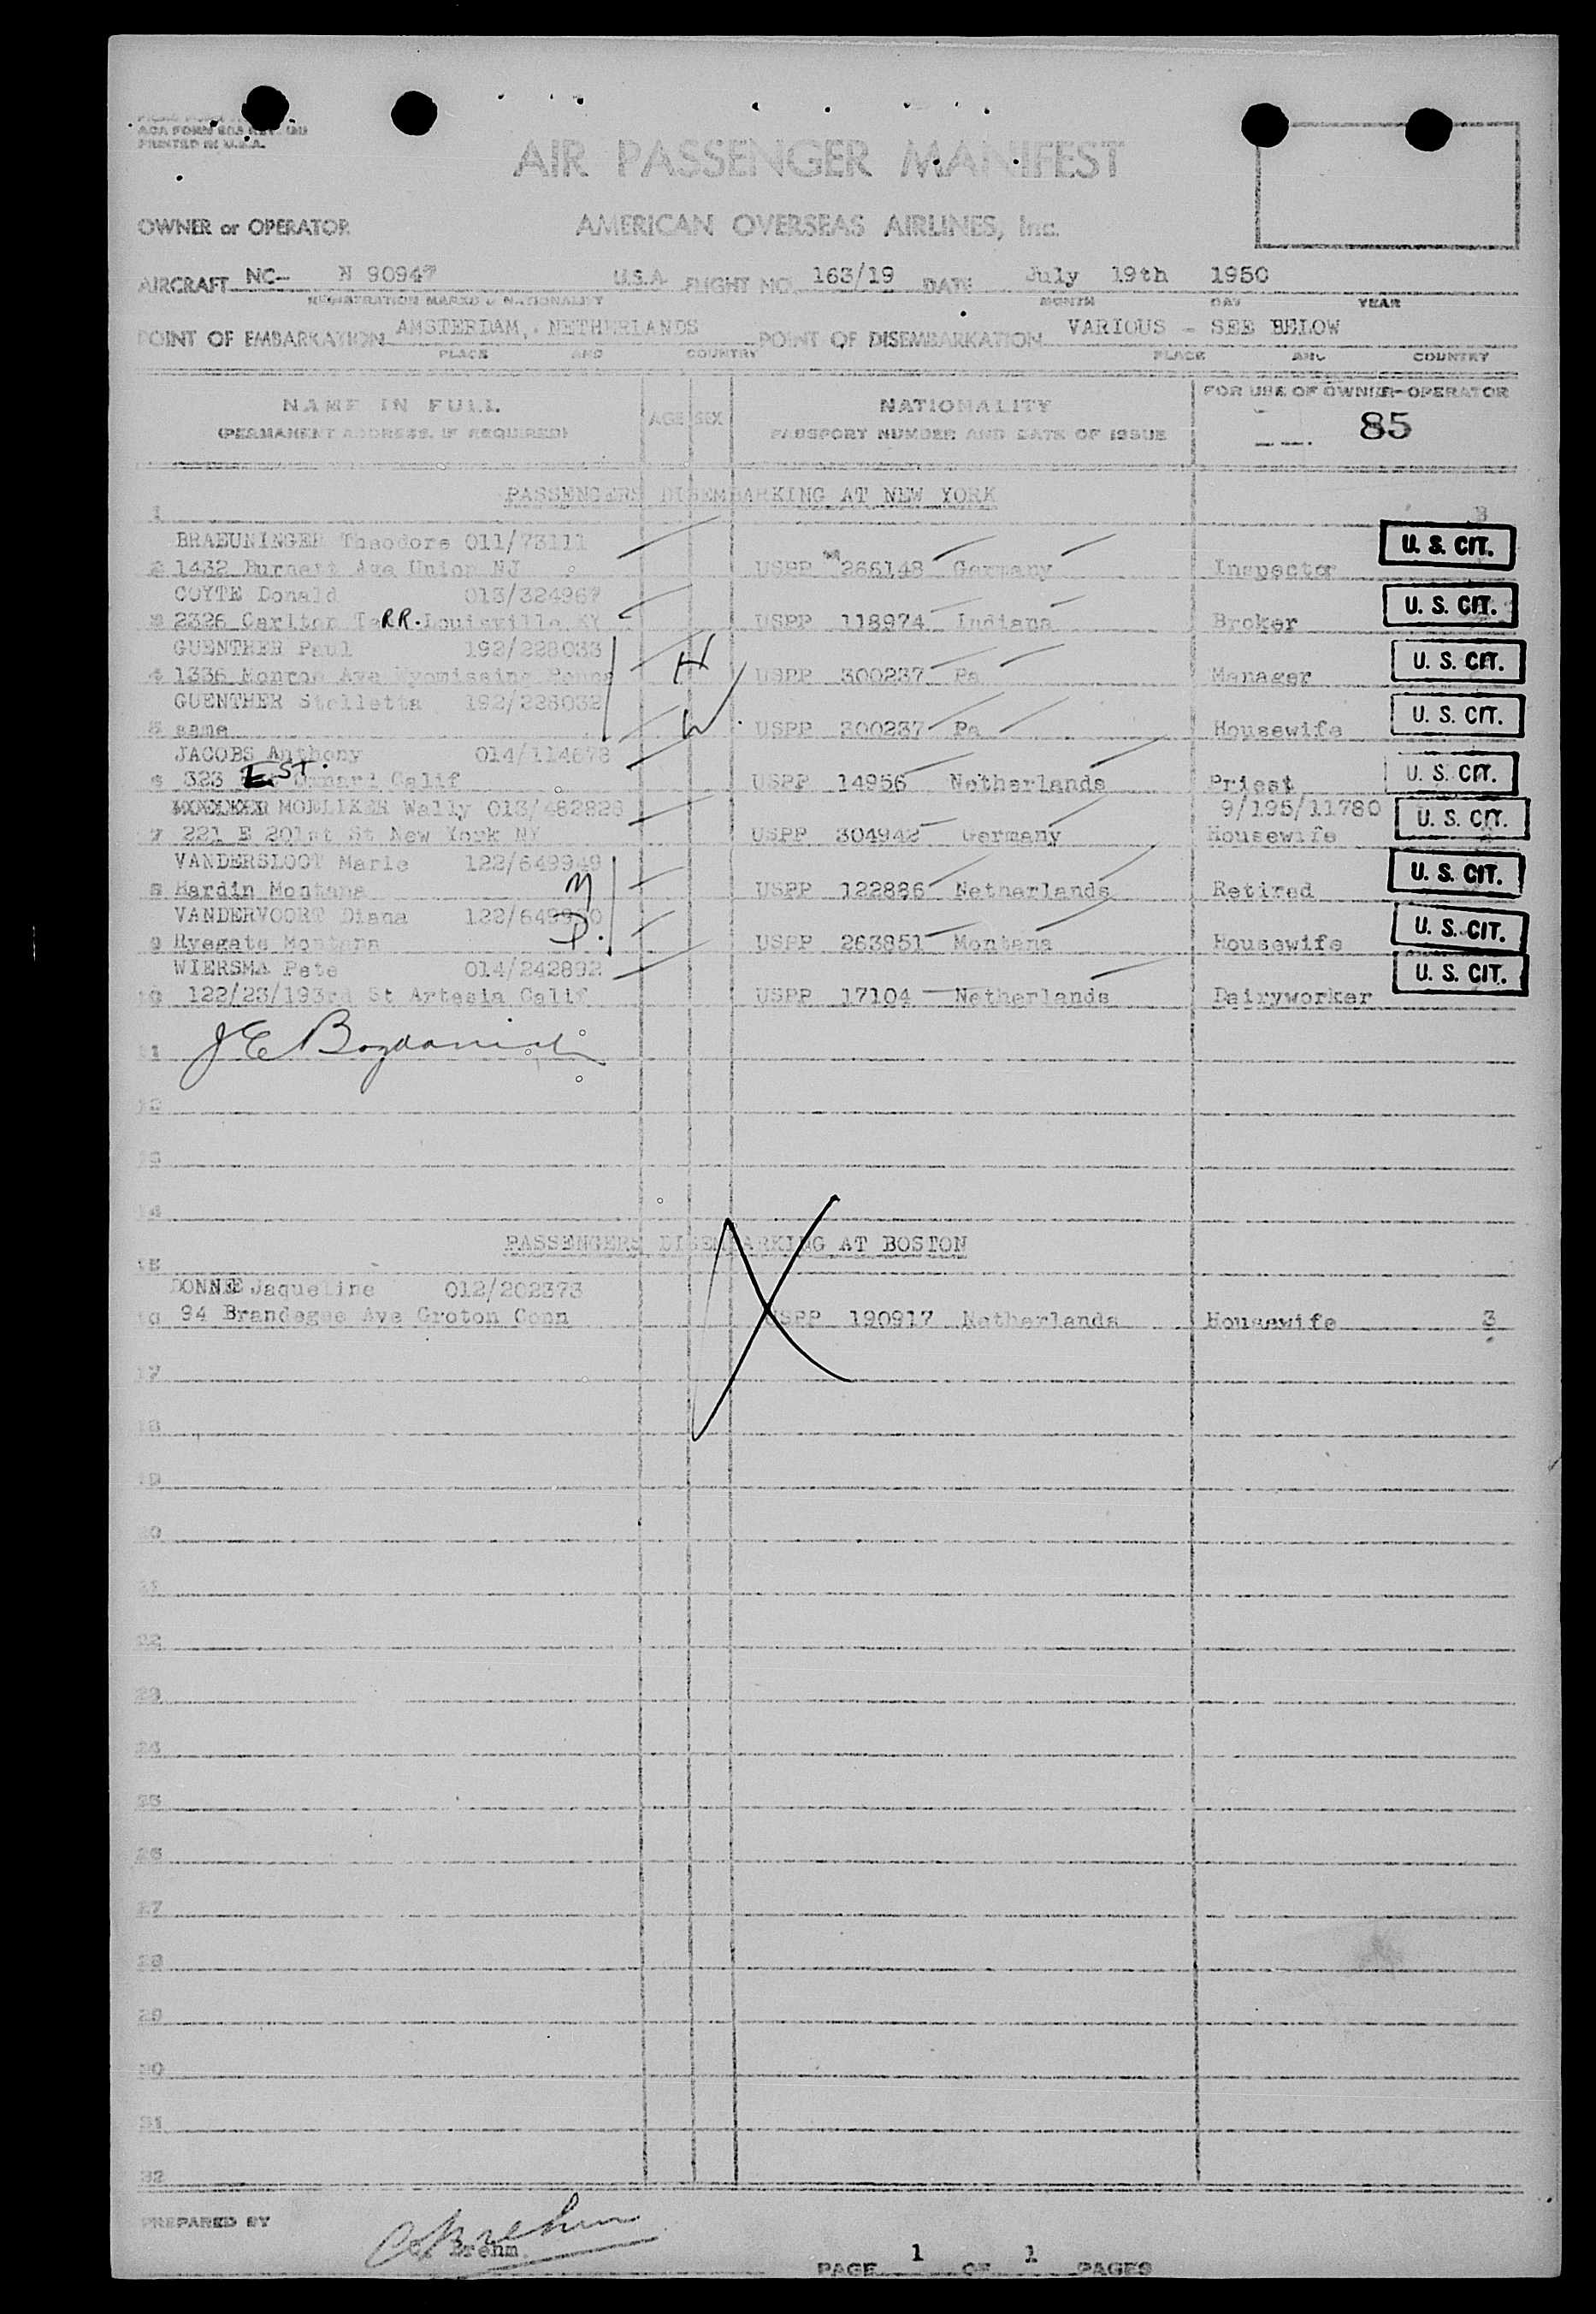 ACA FORM
PRINTED IN U.S.A.
AIR PASSENGER MANIFEST
OWNER or OPERATOR AMERICAN OVERSEAS AIRLINES, Inc.
AIRCRAFT NC- N 90947 U.S.A. FLIGHT NO. 163/19 DATE July 19th 1950
REGISTRATION MARKS & NATIONALITY MONTH DAY YEAR
POINT OF EMBARKATION AMSTERDAM, NETHERLANDS POINT OF DISEMBARKATION VARIOUS - SEE BELOW
PLACE AND COUNTRY PLACE AND COUNTRY
NAME IN FULL AGE SEX NATIONALITY FOR USE OF OWNER-OPERATOR
(PERMANENT ADDRESS, IF REQUIRED) PASSPORT NUMBER AND DATE OF ISSUE 85
PASSENGERS DISEMBARKING AT NEW YORK
1
BRAEUNINGER Theodore 011/73111 U. S. CIT.
2 1432 Burnett Ave Union NJ USPP 266148 Germany Inspector
COYTE Donald 013/324967 U. S. CIT.
3 2326 Carlton TeRR. Louisville KY USPP 118974 Indiana Broker
GUENTHER Paul 192/228033 H U. S. CIT.
4 1336 Monroe Ave Wyomissing Penna USPP 300237 Pa Manager
GUENTHER Stelletta 192/228032 W. U. S. CIT.
5 same USPP 300237 Pa Housewife
JACOBS Anthony 014/114678 U. S. CIT.
6 323 E ST. Oxnard Calif USPP 14956 Netherlands Priest
MOELIKER Wally 013/482828 9/195/11780 U. S. CIT.
7 221 E 201st St New York NY USPP 304942 Germany Housewife
VANDERSLOOT Marie 122/649949 M U. S. CIT.
8 Hardin Montana USPP 122886 Netherlands Retired
VANDERVOORT Diana D. U. S. CIT.
9 Ryegate Montana USPP 263851 Montana Housewife
WIERSMA Pete 014/242892 U. S. CIT.
10 122/23/193rd St Artesia Calif USPP 17104 Netherlands Dairyworker
11 J E
12
13
14
PASSENGERS DISEMBARKING AT BOSTON
15
DONNE Jaqueline 012/202373
16 94 Brandegee Ave Groton Conn USPP 190917 Netherlands Housewife 3
17
18
19
20
21
22
23
24
25
26
27
28
29
30
31
32
PREPARED BY
Brehm
PAGE 1 OF 1 PAGES